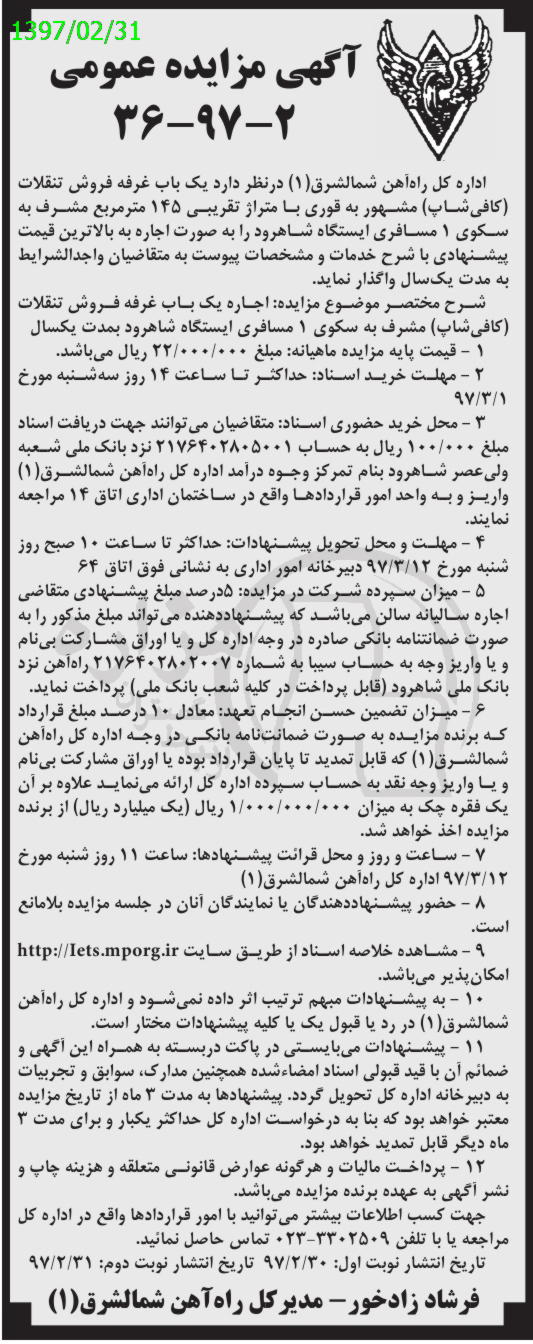 1397/02/31
آگهی مزایده عمومی
۳۶-۹۷-۲
اداره کل راه‌آهن شمالشرق(۱) درنظر دارد یک باب غرفه فروش تنقلات
(کافی‌شاپ) مشهور به قوری با متراژ تقریبی ۱۴۵ مترمربع مشرف به
سکوی ۱ مسافری ایستگاه شاهرود را به صورت اجاره به بالاترین قیمت
پیشنهادی با شرح خدمات و مشخصات پیوست به متقاضیان واجدالشرایط
به مدت یک‌سال واگذار نماید.
شرح مختصر موضوع مزایده: اجاره یک باب غرفه فروش تنقلات
(کافی‌شاپ) مشرف به سکوی ۱ مسافری ایستگاه شاهرود بمدت یکسال
۱ - قیمت پایه مزایده ماهیانه: مبلغ ۲۲/۰۰۰/۰۰۰ ریال می‌باشد.
۲ - مهلت خرید اسناد: حداکثر تا ساعت ۱۴ روز سه‌شنبه مورخ
۹۷/۳/۱
۳ - محل خرید حضوری اسناد: متقاضیان می‌توانند جهت دریافت اسناد
مبلغ ۱۰۰/۰۰۰ ریال به حساب ۲۱۷۶۴۰۲۸۰۵۰۰۱ نزد بانک ملی شعبه
ولی‌عصر شاهرود بنام تمرکز وجوه درآمد اداره کل راه‌آهن شمالشرق(۱)
واریز و به واحد امور قراردادها واقع در ساختمان اداری اتاق ۱۴ مراجعه
نمایند.
۴ - مهلت و محل تحویل پیشنهادات: حداکثر تا ساعت ۱۰ صبح روز
شنبه مورخ ۹۷/۳/۱۲ دبیرخانه امور اداری به نشانی فوق اتاق ۶۴
۵ - میزان سپرده شرکت در مزایده: ۵درصد مبلغ پیشنهادی متقاضی
اجاره سالیانه سالن می‌باشد که پیشنهاددهنده می‌تواند مبلغ مذکور را به
صورت ضمانتنامه بانکی صادره در وجه اداره کل و یا اوراق مشارکت بی‌نام
و یا واریز وجه به حساب سیبا به شماره ۲۱۷۶۴۰۲۸۰۲۰۰۷ راه‌آهن نزد
بانک ملی شاهرود (قابل پرداخت در کلیه شعب بانک ملی) پرداخت نماید.
۶ - میزان تضمین حسن انجام تعهد: معادل ۱۰درصد مبلغ قرارداد
که برنده مزایده به صورت ضمانت‌نامه بانکی در وجه اداره کل راه‌آهن
شمالشرق(۱) که قابل تمدید تا پایان قرارداد بوده یا اوراق مشارکت بی‌نام
و یا واریز وجه نقد به حساب سپرده اداره کل ارائه می‌نماید علاوه بر آن
یک فقره چک به میزان ۱/۰۰۰/۰۰۰/۰۰۰ ریال (یک میلیارد ریال) از برنده
مزایده اخذ خواهد شد.
۷ - ساعت و روز و محل قرائت پیشنهادها: ساعت ۱۱ روز شنبه مورخ
۹۷/۳/۱۲ اداره کل راه‌آهن شمالشرق(۱)
۸ - حضور پیشنهاددهندگان یا نمایندگان آنان در جلسه مزایده بلامانع
است.
۹ - مشاهده خلاصه اسناد از طریق سایت http://Iets.mporg.ir
امکان‌پذیر می‌باشد.
۱۰ - به پیشنهادات مبهم ترتیب اثر داده نمی‌شود و اداره کل راه‌آهن
شمالشرق(۱) در رد یا قبول یک یا کلیه پیشنهادات مختار است.
۱۱ - پیشنهادات می‌بایستی در پاکت دربسته به همراه این آگهی و
ضمائم آن با قید قبولی اسناد امضاءشده همچنین مدارک، سوابق و تجربیات
به دبیرخانه اداره کل تحویل گردد. پیشنهادها به مدت ۳ ماه از تاریخ مزایده
معتبر خواهد بود که بنا به درخواست اداره کل حداکثر یکبار و برای مدت ۳
ماه دیگر قابل تمدید خواهد بود.
۱۲ - پرداخت مالیات و هرگونه عوارض قانونی متعلقه و هزینه چاپ و
نشر آگهی به عهده برنده مزایده می‌باشد.
جهت کسب اطلاعات بیشتر می‌توانید با امور قراردادها واقع در اداره کل
مراجعه یا با تلفن ۳۳۰۲۵۰۹-۰۲۳ تماس حاصل نمائید.
تاریخ انتشار نوبت اول: ۹۷/۲/۳۰ تاریخ انتشار نوبت دوم: ۹۷/۲/۳۱
فرشاد زادخور - مدیرکل راه‌آهن شمالشرق(۱)